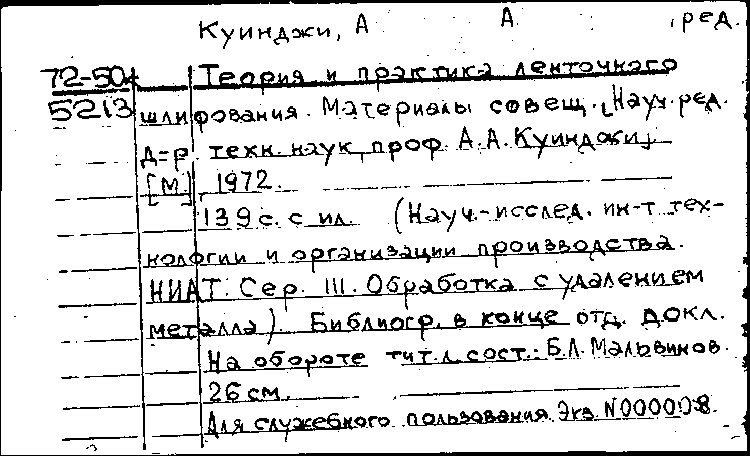 Куинджи, А А , ред.
72-504 Теория и практика ленточного
5213 шлифования. Материалы совещ. [Науч. ред.
д-р техн. наук, проф. А.А. Куинджи].
[М.], 1972.
139 с. с ил. (Науч.-исслед. ин-т тех-
нологии и организации производства.
НИАТ. Сер. III. Обработка с удалением
металла). Библиогр. в конце отд. докл.
На обороте тит. л. сост.: Б.Л. Мальвинов.
26 см.
Для служебного пользования. Экз. N000008.